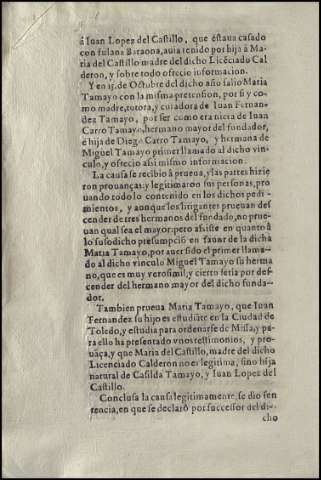 á Iuan Lopez del Castillo, que estaua casado
con fulana Baraona, auia tenido por hija á Ma
ria del Castillo madre del dicho Licẽciado Cal
deron, y sobre todo ofrecio informacion.
Y en 15. de Octubre del dicho año salio Maria
Tamayo con la misma pretension, por si y co-
mo madre, tutora, y curadora de Iuan Fernan-
dez Tamayo, por ser como era nieta de Iuan
Carro Tamayo, hermano mayor del fundador,
è hija de Diego Carro Tamayo, y hermana de
Miguel Tamayo primer llamado al dicho vin-
culo, y ofrecio assi mismo informacion.
La causa se recibio â prueua, y las partes hizie
ron prouanças, y legitimaron sus personas, pro
uando todo lo contenido en los dichos pedi-
mientos, y aunque los litigantes prueuan des
cender de tres hermanos del fundado, no prue-
uan qual sea el mayor: pero assiste en quanto â
lo susodicho presumpciõ en fauor de la dicha
Maria Tamayo, por auer sido el primer llama-
do al dicho vinculo Miguel Tamayo su herma
no, que es muy verosimil, y cierto seria por des
cender del hermano mayor del dicho funda-
dor.
Tambien prueua Maria Tamayo, que Iuan
Fernandez su hijo es estudiãte en la Ciudad de
Toledo, y estudia para ordenarse de Missa, y pa
ra ello ha presentado vnos testimonios, y pro-
uãça, y que Maria del Castillo, madre del dicho
Licenciado Calderon no es legitima, sino hija
natural de Casilda Tamayo, y Iuan Lopez del
Castillo.
Conclusa la causa legitimamente, se dio sen
tencia, en que se declarò por successor del di-
cho